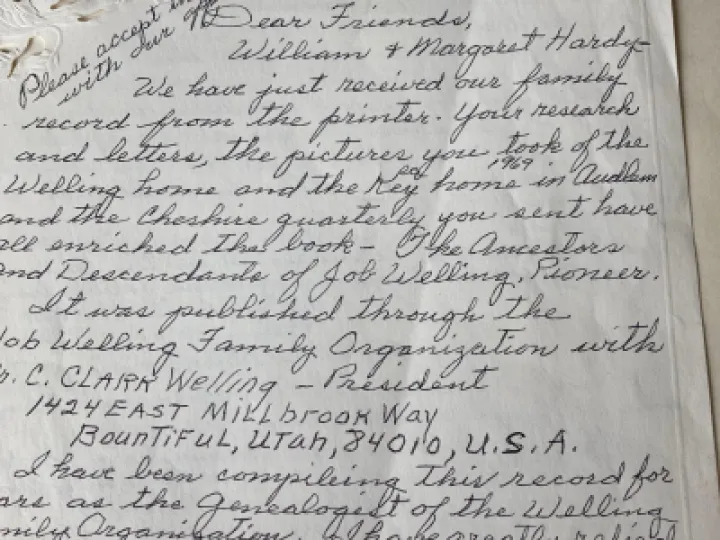 Please accept
with our
Dear Friends,
William & Margaret Hardy-
We have just received our family
record from the printer. Your research
and letters, the pictures you took of the
1969
Welling home and the Key home in Audlem
and the Cheshire quarterly you sent have
all enriched the book - The Ancestors
and Descendants of Job Welling, Pioneer.
It was published through the
Job Welling Family Organization with
C. CLARK Welling - President
1424 EAST Millbrook Way
BounTiFuL, Utah, 84010, U.S.A.
I have been compileing this record for
as the Genealogist of the Welling
Family Organization. I have greatly